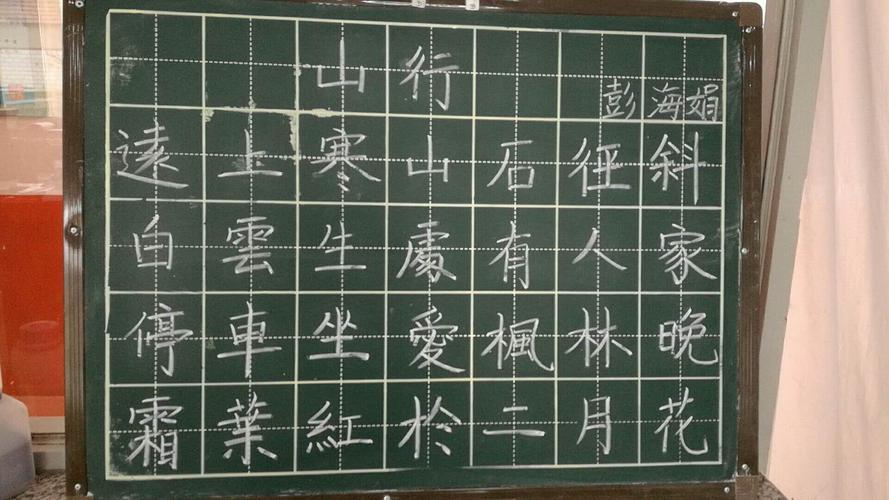 山行
彭海娟
遠上寒山石徑斜
自雲生處有人家
停車坐愛楓林晚
霜葉紅於二月花